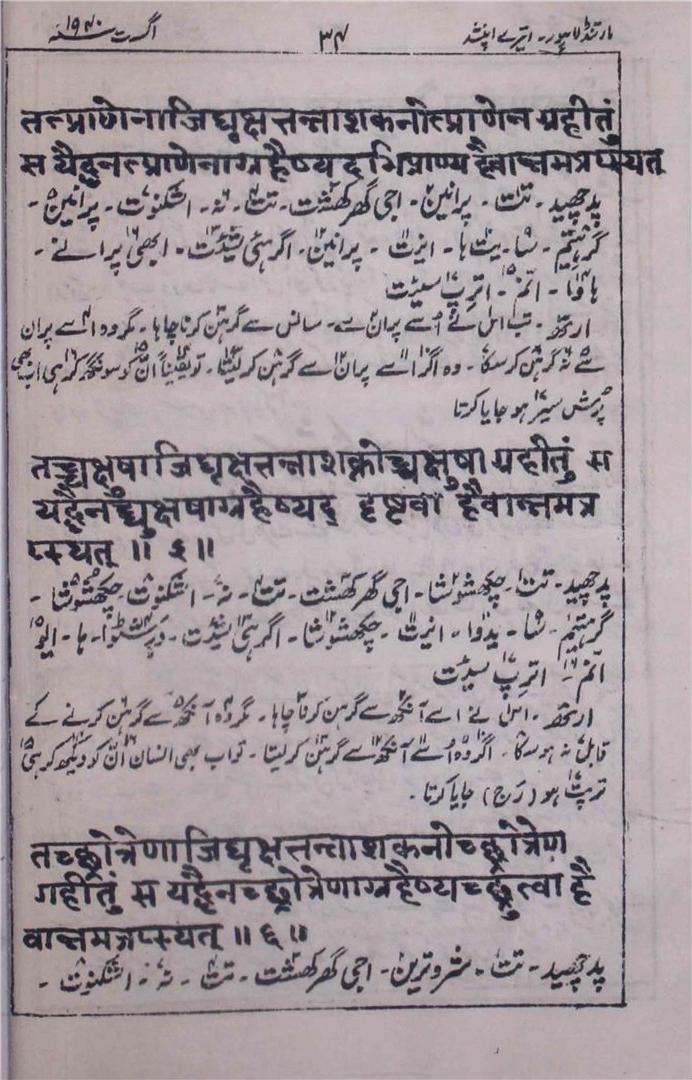 مارتنڈ لاہور۔ ایترے اپنشد ۳۴ اگست ۱۹۴۰
तत्प्राणेनाजिघृक्षत्तन्नाशकनोत्प्राणेन ग्रहीतुं
स यैद्धैनत्प्राणेनाग्रहैष्यदभिप्राण्य हैवान्नमत्रप्स्यत्
پدچھید۔ تت۔ پرانین۔ اجی گھرکھشت۔ تت۔ نہ۔ اشکنوت۔ پرانین۔
گرہیتم۔ سا۔ یت ہا۔ اینت۔ پرانین۔ اگرہئی شیدت۔ ابھی پرانے۔
ہا وا۔ انم۔ اترپ سیت
ارتھ۔ تب اس نے اُسے پران سے۔ سانس سے گرہن کرنا چاہا۔ مگر وہ اسے پران
سے نہ گرہن کر سکا۔ وہ اگر اسے پران سے گرہن کر لیتا۔ تو یقیناً ان کو سونگھ کر ہی اب بھی
پرش سیر ہو جایا کرتا
तच्चक्षुषाजिघृक्षत्तन्नाशक्नोच्चक्षुषा ग्रहीतुं स
यद्धैनच्चक्षुषाग्रहैष्यद् दृष्टवा हैवान्नमत्र
प्स्यत् ॥ ५ ॥
پدچھید۔ تت۔ چکھشوشا۔ اجی گھرکھشت۔ تت۔ نہ۔ اشکنوت۔ چکھشوشا۔
گرہیتم۔ سا۔ یدوا۔ انیت۔ چکھشوشا۔ اگرہئی شیدت۔ درشٹوا۔ ہا۔ ایو
انم۔ اترپ سیت
ارتھ۔ اس نے اسے آنکھ سے گرہن کرنا چاہا۔ مگر وہ آنکھ سے گرہن کرنے کے
قابل نہ ہو سکا۔ اگر وہ اُسے آنکھ سے گرہن کر لیتا۔ تو اب بھی انسان ان کو دیکھ کر ہی
ترپت ہو (رَج) جایا کرتا۔
तच्छ्रोत्रेणाजिघृक्षत्तन्नाशकनोच्छ्रोत्रेण
ग्रहीतुं स यद्धैनच्छ्रोत्रेणाग्रहैष्यच्छ्रुत्वा है
वान्नमत्रप्स्यत् ॥ ६ ॥
پدچھید۔ تت۔ شروترین۔ اجی گھرکھشت۔ تت۔ نہ۔ اشکنوت۔